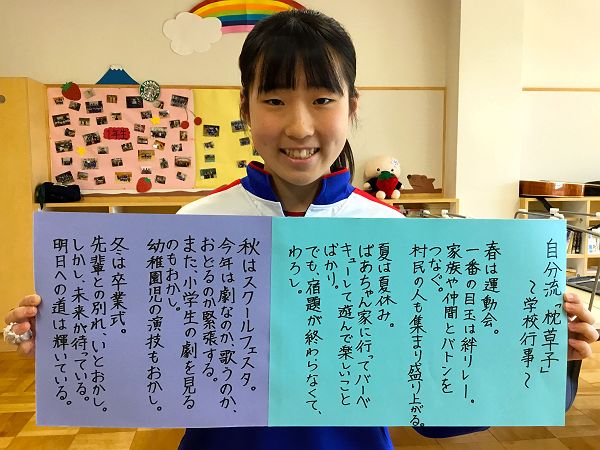 自分流「枕草子」
～学校行事～
春は運動会。
一番の目玉は絆リレー。
家族や仲間とバトンを
つなぐ。
村民の人も集まり盛り上がる。
夏は夏休み。
ばあちゃん家に行ってバーベ
キューして遊んで楽しいこと
ばかり。
でも、宿題が終わらなくて、
わろし。
秋はスクールフェスタ。
今年は劇なのか、歌うのか、
おどるのか緊張する。
また、小学生の劇を見る
のもおかし。
幼稚園児の演技もおかし。
冬は卒業式。
先輩との別れ、いとおかし。
しかし、未来が待っている。
明日への道は輝いている。